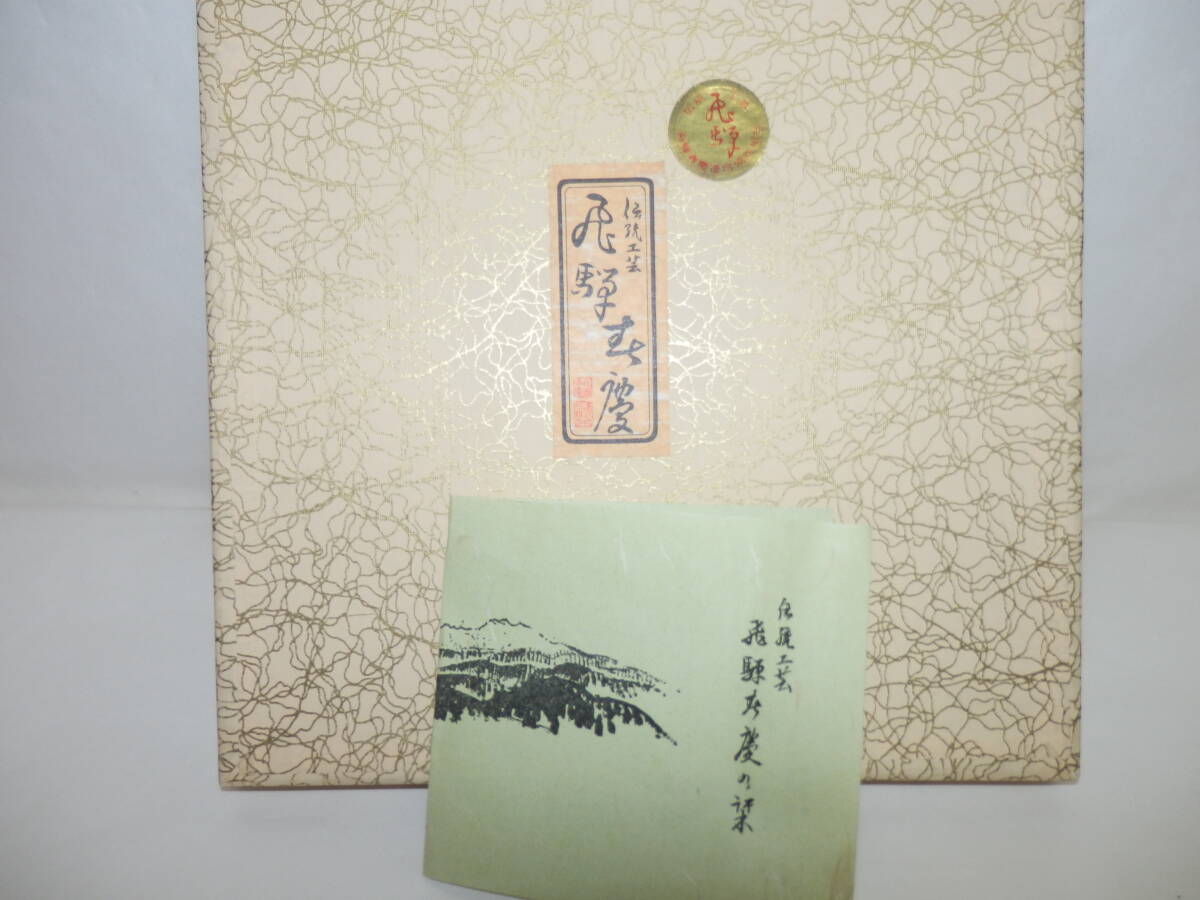 飛騨
伝統工芸
飛騨春慶
伝統工芸
飛騨春慶の栞